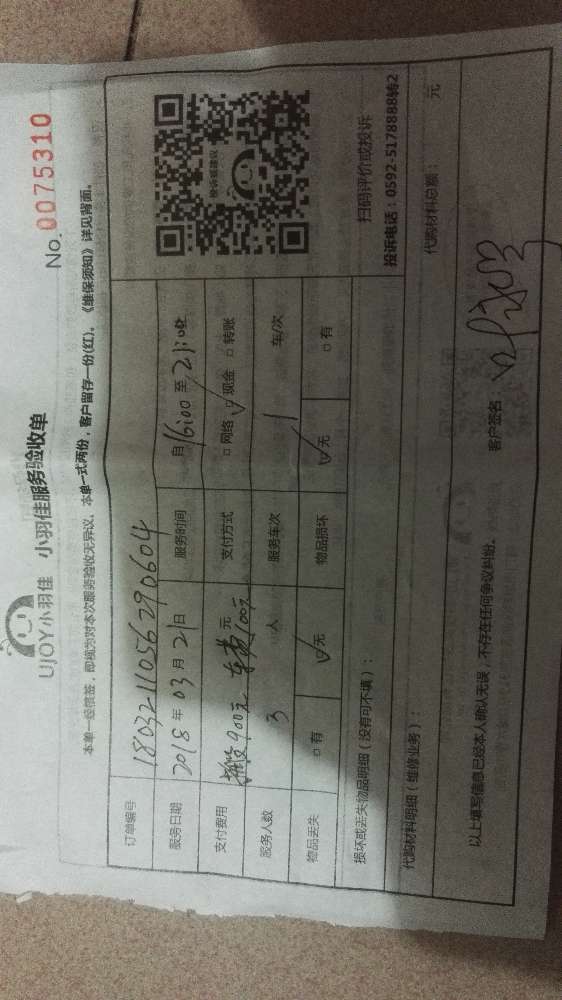 UJOY小羽佳 小羽佳服务验收单
No.0075310
本单一经信签，即视为对本次服务验收无异议。本单一式两份，客户留存一份(红)。《维保须知》详见背面。
订单编号 1803211056290604
服务日期 2018年03月21日 服务时间 自16:00至21:00
支付费用 900元 车费100元 元 支付方式 □网络 ☑现金 □转账
服务人数 3 人 服务车次 1 车/次
物品丢失 □有 ☑无 物品损坏 ☑无 □有
投诉或建议
扫码评价或投诉
投诉电话：0592-5178888转2
损坏或丢失物品明细（没有可不填）：
代购材料明细（维修业务）： 代购材料总额： 元
以上填写信息已经本人确认无误，不存在任何争议纠纷。 客户签名